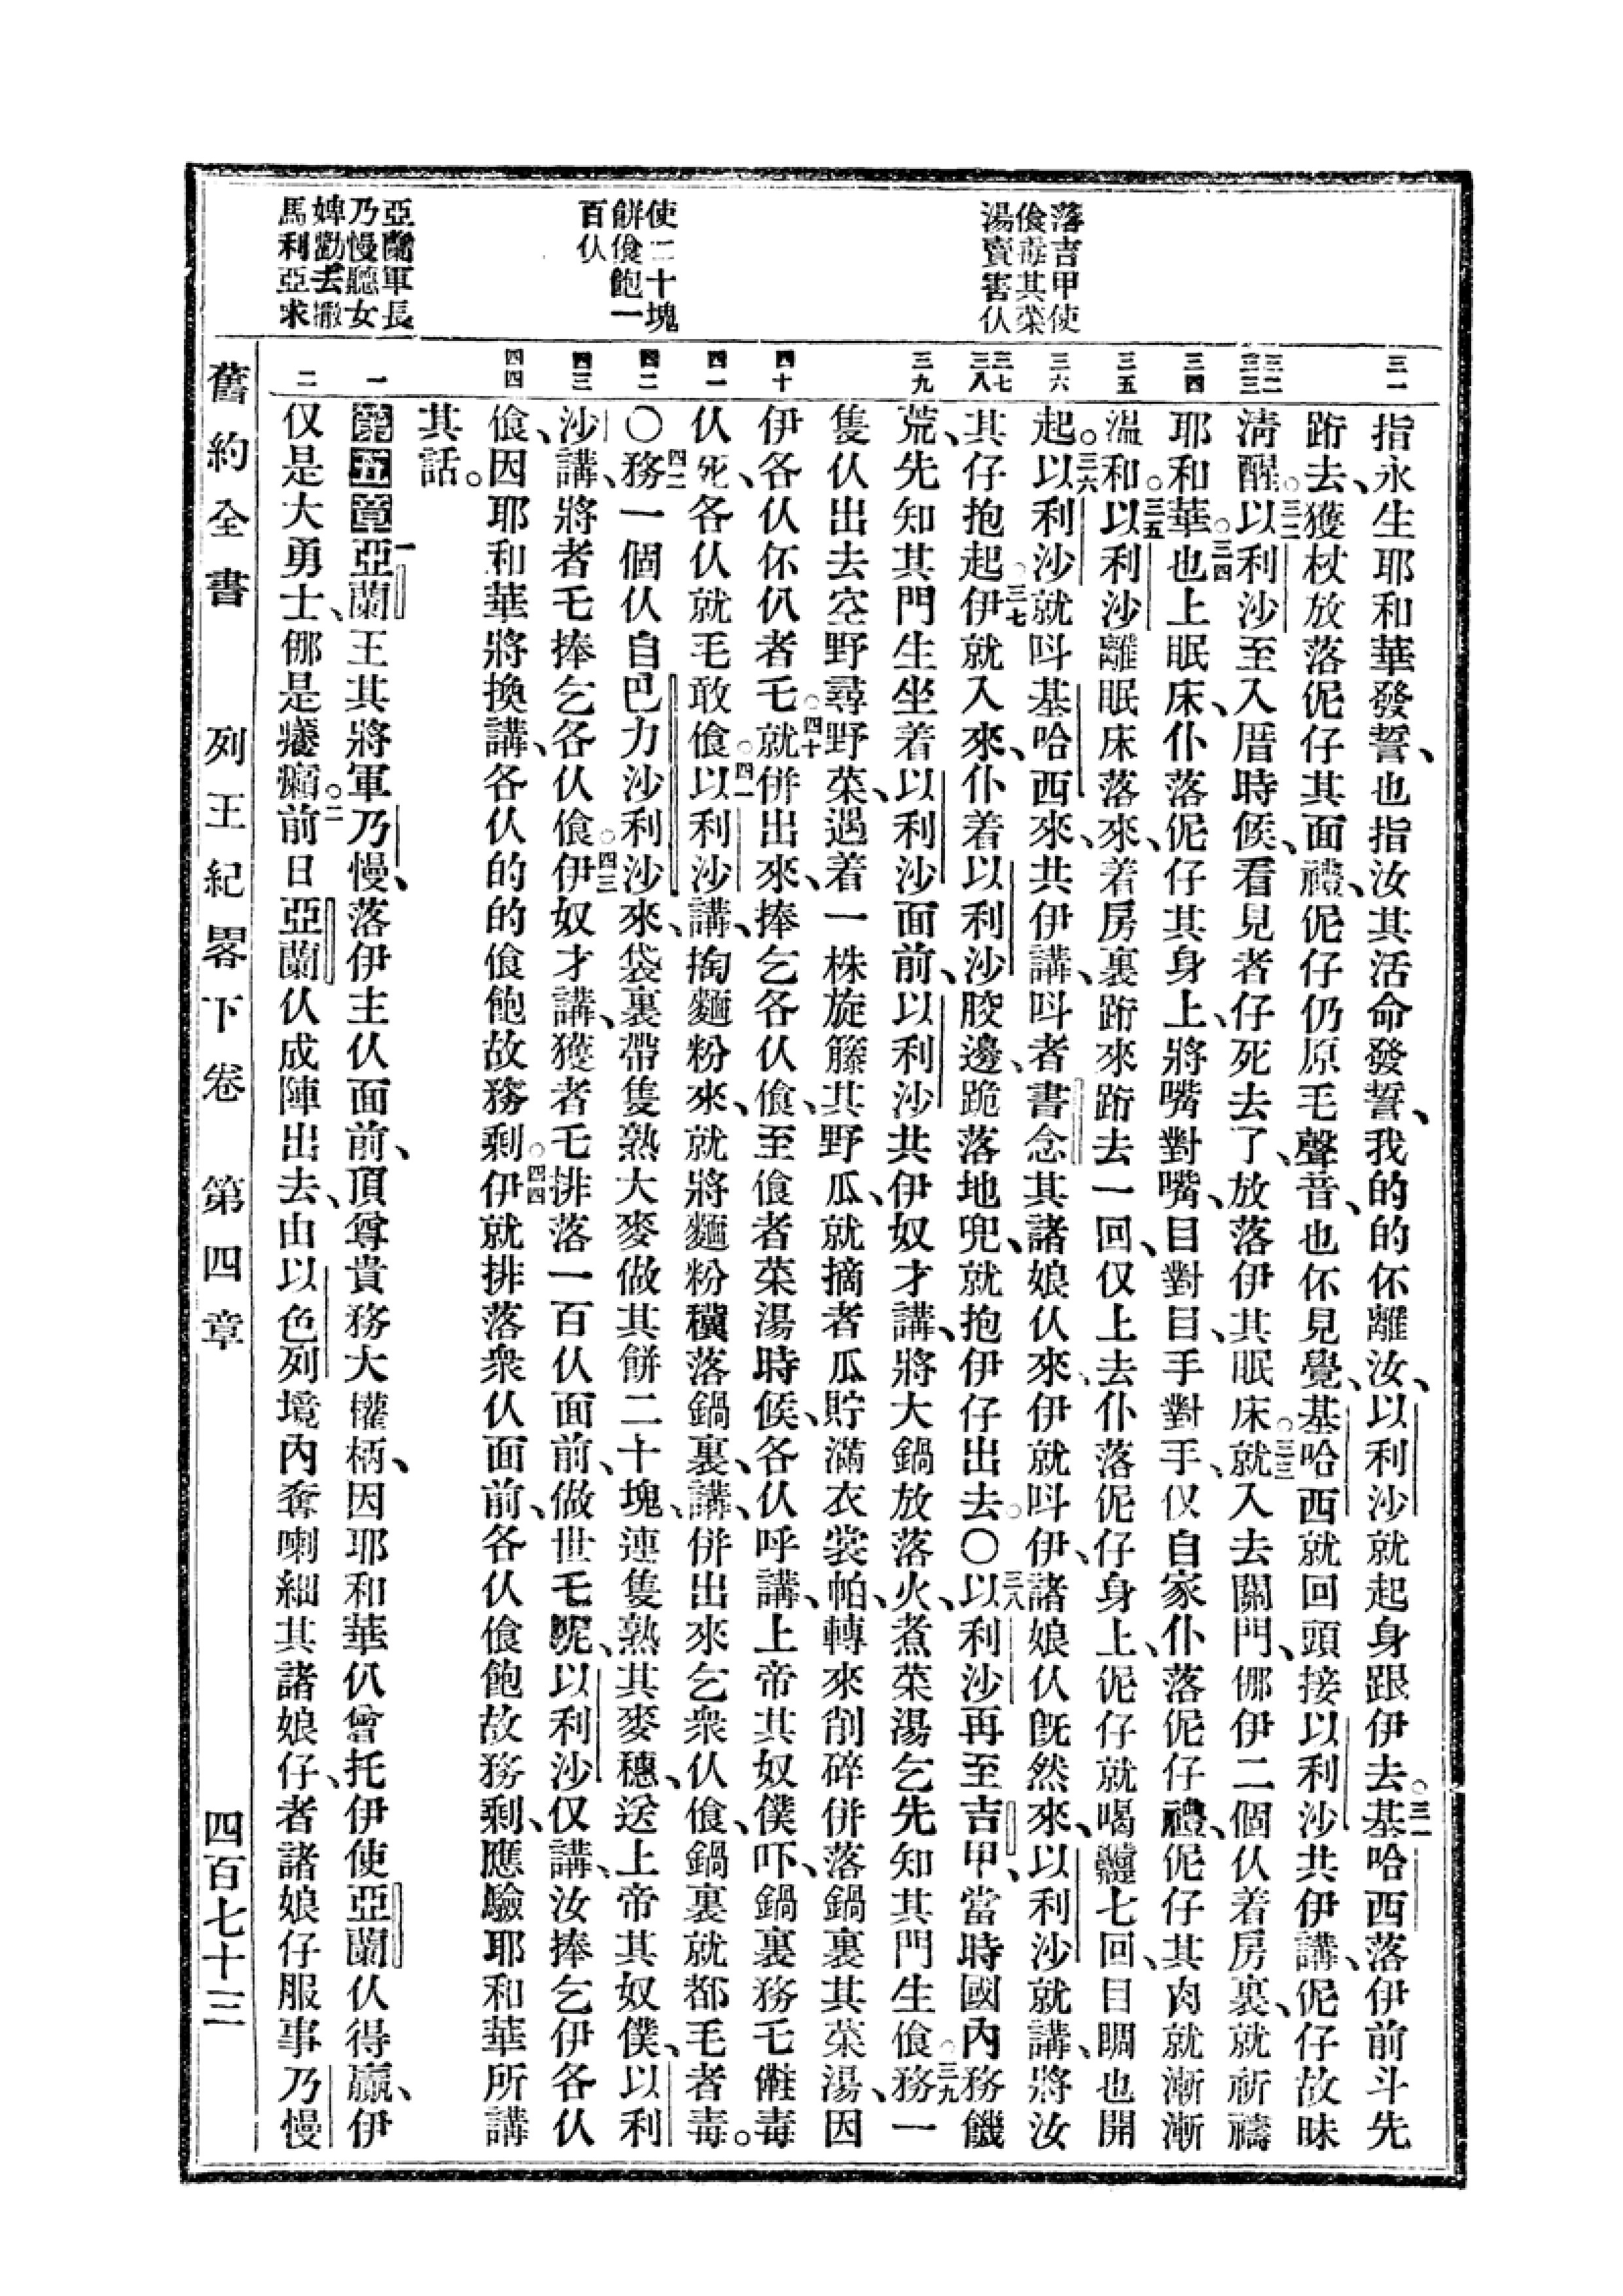 落吉甲使
㑚毒其菜
湯賣害仈
使二十塊
餅㑚飽一
百仈
亞蘭軍長
乃慢聽女
婢勸去撒
馬利亞求
三一
三二
三三
三四
三五
三六
三七
三八
三九
四十
四一
四二
四三
四四
一
二
指永生耶和華發誓、也指汝其活命發誓、我的的伓離汝、以利沙就起身跟伊去。三一基哈西落伊前斗先
跕去、獲杖放落伲仔其面禮、伲仔仍原毛聲音、也伓見覺、基哈西就回頭接以利沙共伊講、伲仔故昧
淸醒。三二以利沙至入厝時候、看見者仔死去了、放落伊其眠床。三三就入去關門、㑚伊二個仈着房裏、就祈禱
耶和華。三四也上眠床、仆落伲仔其身上、將嘴對嘴、目對目、手對手、仅自家仆落伲仔禮、伲仔其肉就漸漸
溫和。三五以利沙離眠床落來、着房裏跕來跕去一回、仅上去仆落伲仔身上、伲仔就喝嚏七回、目睭也開
起。三六以利沙就呌基哈西來、共伊講、呌者書念其諸娘仈來、伊就呌伊、諸娘仈旣然來、以利沙就講、將汝
其仔抱起。三七伊就入來、仆着以利沙骹邊、跪落地兜、就抱伊仔出去。〇三八以利沙再至吉甲、當時國內務饑
荒、先知其門生坐着以利沙面前、以利沙共伊奴才講、將大鍋放落火、煮菜湯乞先知其門生㑚。三九務一
隻仈出去空野尋野菜、遇着一株旋籐其野瓜、就摘者瓜貯滿衣裳帕、轉來削碎併落鍋裏其菜湯、因
伊各仈伓仈者乇。四十就併出來、捧乞各仈㑚、至㑚者菜湯時候、各仈呼講、上帝其奴僕吓、鍋裏務乇僫毒
仈死、各仈就毛敢㑚。四一以利沙講、掏麵粉來、就將麵粉䊪落鍋裏、講、併出來乞衆仈㑚、鍋裏就都毛者毒。
〇四二務一個仈自巴力沙利沙來、袋裏帶隻熟大麥做其餅二十塊、連隻熟其麥穗、送上帝其奴僕、以利
沙講、將者乇捧乞各仈㑚。四三伊奴才講、獲者乇排落一百仈面前、做世乇呢、以利沙仅講、汝捧乞伊各仈
㑚、因耶和華將換講、各仈的的㑚飽故務剩。四四伊就排落衆仈面前、各仈㑚飽故務剩、應驗耶和華所講
其話。
第五章 一亞蘭王其將軍乃慢、落伊主仈面前、頂尊貴務大權柄、因耶和華仈曾托伊使亞蘭仈得贏、伊
仅是大勇士、㑚是癢癩。二前日亞蘭仈成陣出去、由以色列境內奪喇細其諸娘仔、者諸娘仔服事乃慢
舊約全書　列王紀畧下卷　第四章　四百七十三